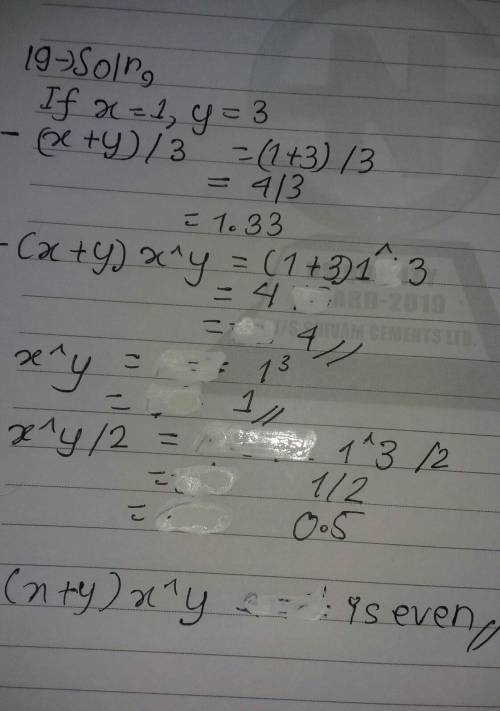 19→Soln,
If x = 1, y = 3
- (x + y) / 3 = (1+3) / 3
= 4/3
= 1.33
- (x + y) x^y = (1+3) 1^3
= 4
= 4 //
x^y = 1³
= 1 //
x^y / 2 = 1^3 / 2
= 1/2
= 0.5
(x + y) x^y is even //
ARD-2019
M/S SHIVAM CEMENTS LTD.